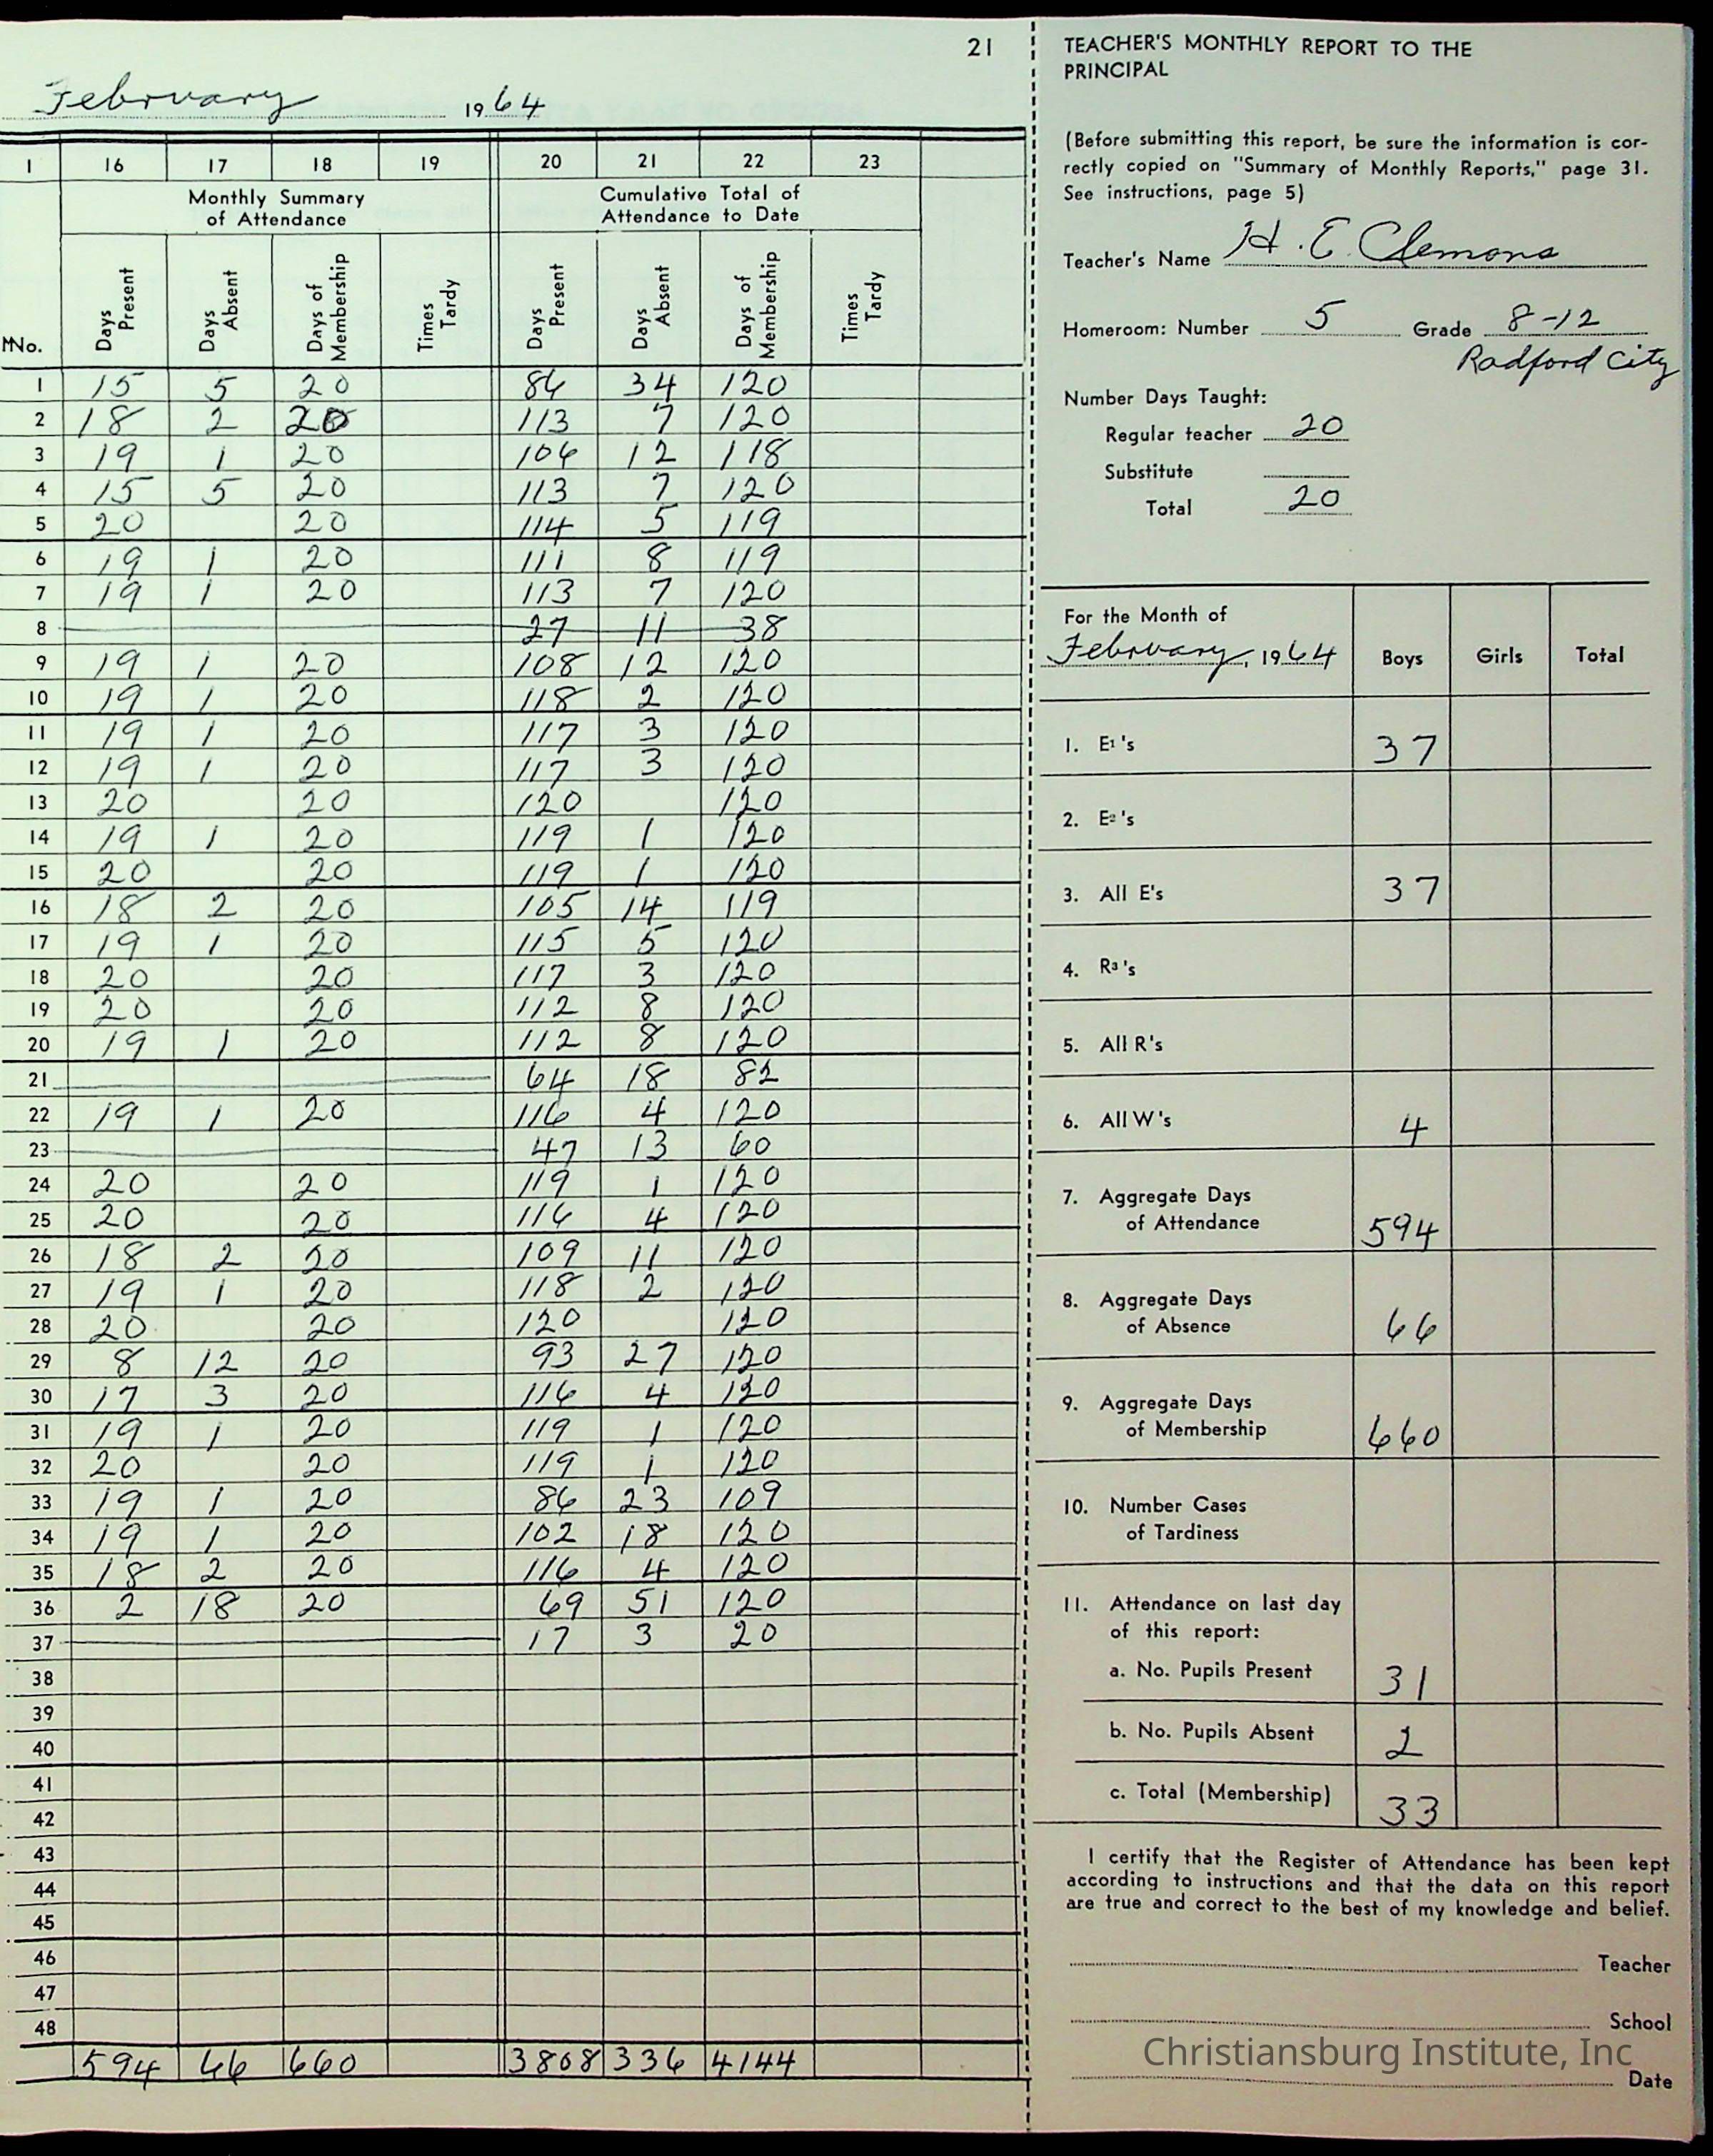 21
February 1964
1 16 17 18 19 20 21 22 23
Monthly Summary of Attendance Cumulative Total of Attendance to Date
No. Days Present Days Absent Days of Membership Times Tardy Days Present Days Absent Days of Membership Times Tardy
1 15 5 20 86 34 120
2 18 2 20 113 7 120
3 19 1 20 106 12 118
4 15 5 20 113 7 120
5 20 20 114 5 119
6 19 1 20 111 8 119
7 19 1 20 113 7 120
8 27 11 38
9 19 1 20 108 12 120
10 19 1 20 118 2 120
11 19 1 20 117 3 120
12 19 1 20 117 3 120
13 20 20 120 120
14 19 1 20 119 1 120
15 20 20 119 1 120
16 18 2 20 105 14 119
17 19 1 20 115 5 120
18 20 20 117 3 120
19 20 20 112 8 120
20 19 1 20 112 8 120
21 64 18 82
22 19 1 20 116 4 120
23 47 13 60
24 20 20 119 1 120
25 20 20 116 4 120
26 18 2 20 109 11 120
27 19 1 20 118 2 120
28 20 20 120 120
29 8 12 20 93 27 120
30 17 3 20 116 4 120
31 19 1 20 119 1 120
32 20 20 119 1 120
33 19 1 20 86 23 109
34 19 1 20 102 18 120
35 18 2 20 116 4 120
36 2 18 20 69 51 120
37 17 3 20
38
39
40
41
42
43
44
45
46
47
48
594 66 660 3808 336 4144
TEACHER'S MONTHLY REPORT TO THE
PRINCIPAL
(Before submitting this report, be sure the information is cor-
rectly copied on "Summary of Monthly Reports," page 31.
See instructions, page 5)
Teacher's Name H. E. Clemons
Homeroom: Number 5 Grade 8-12
Radford City
Number Days Taught:
Regular teacher 20
Substitute
Total 20
For the Month of
February, 1964 Boys Girls Total
1. E1's 37
2. E2's
3. All E's 37
4. R3's
5. All R's
6. All W's 4
7. Aggregate Days
of Attendance 594
8. Aggregate Days
of Absence 66
9. Aggregate Days
of Membership 660
10. Number Cases
of Tardiness
11. Attendance on last day
of this report:
a. No. Pupils Present 31
b. No. Pupils Absent 2
c. Total (Membership) 33
I certify that the Register of Attendance has been kept
according to instructions and that the data on this report
are true and correct to the best of my knowledge and belief.
Teacher
School
Christiansburg Institute, Inc
Date